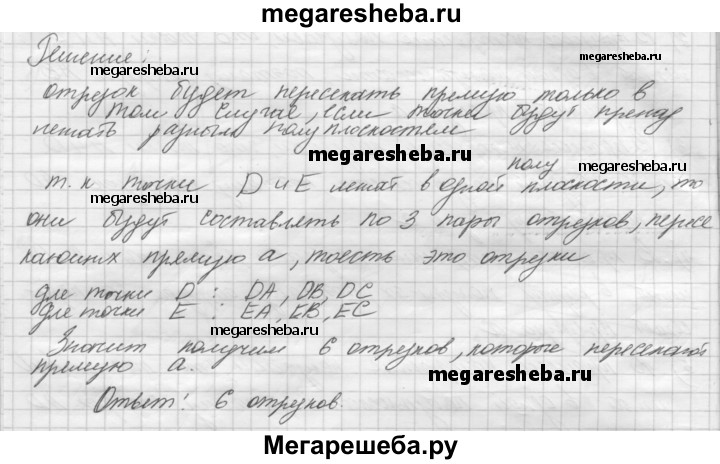 megaresheba.ru
Решение:
megaresheba.ru
отрезок будет пересекать прямую только в
том случае, если точки будут принад
лежать разным полуплоскостям
megaresheba.ru
полу
megaresheba.ru
т.к точки D и E лежат в одной плоскости, то
megaresheba.ru
они будут составлять по 3 пары отрезков, пересе
кающих прямую a, тоесть это отрезки
для точки D : DA, DB, DC
для точки E : EA, EB, EC
megaresheba.ru
Значит получим 6 отрезков, которые пересекают
прямую a.
megaresheba.ru
Ответ: 6 отрезков.
Мегарешеба.ру